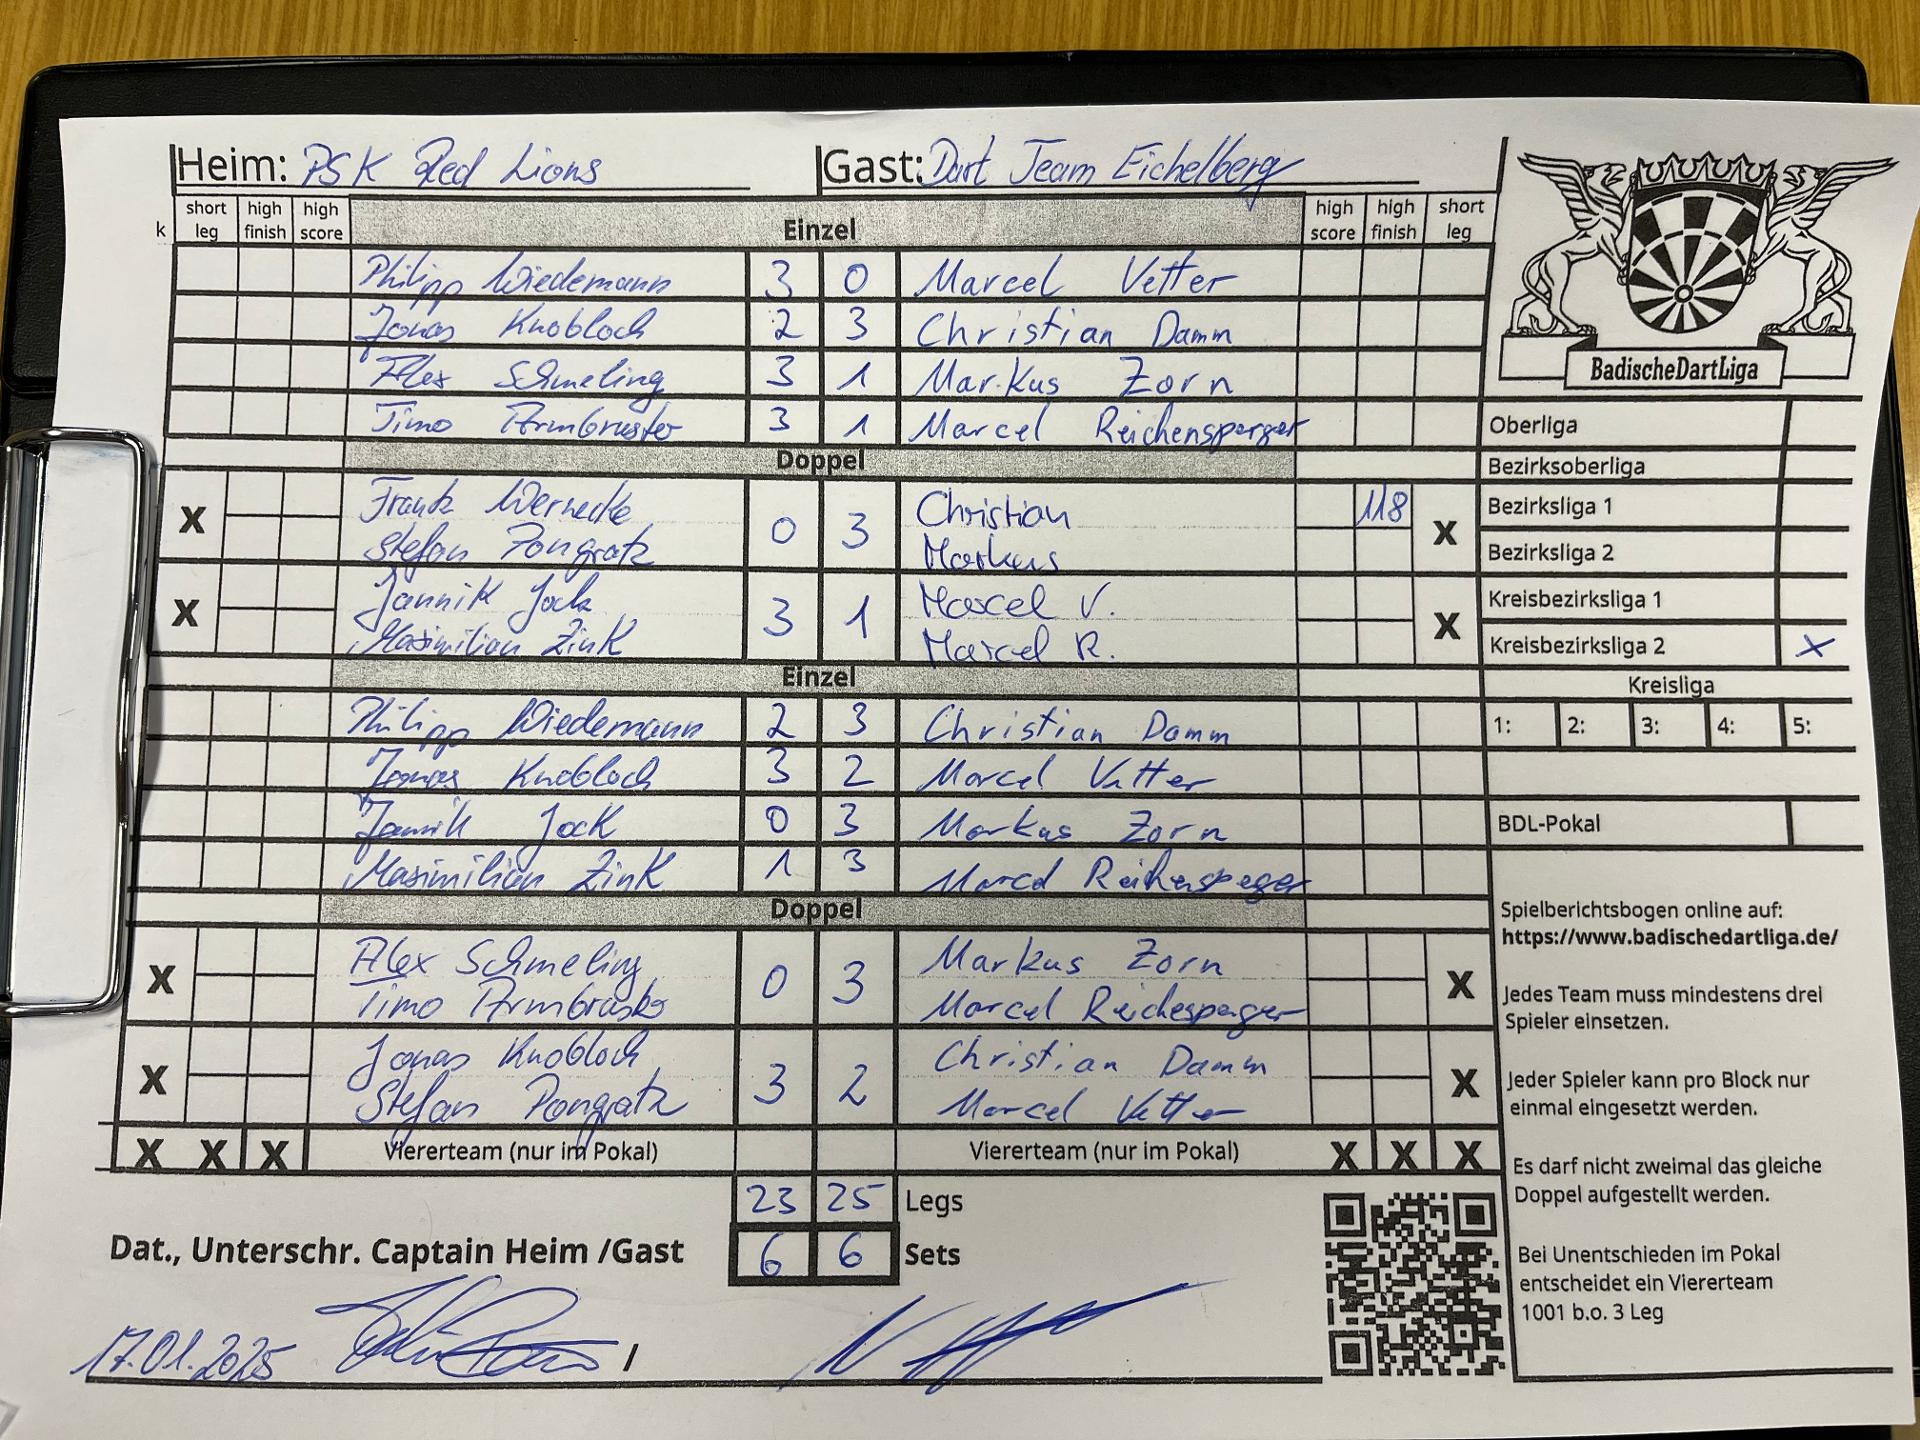 Heim: PSK Red Lions Gast: Dart Team Eichelberg
k short leg high finish high score Einzel high score high finish short leg
Philipp Wiedemann 3 0 Marcel Vetter
Jonas Knobloch 2 3 Christian Damm
Alex Schmeling 3 1 Markus Zorn
Timo Armbruster 3 1 Marcel Reichensperger
Doppel
Frank Wernecke Christian 118
X 0 3 X
Stefan Pongratz Markus
Jannik Jock Marcel V.
X 3 1 X
Maximilian Zink Marcel R.
Einzel
Philipp Wiedemann 2 3 Christian Damm
Jonas Knobloch 3 2 Marcel Vetter
Jannik Jock 0 3 Markus Zorn
Maximilian Zink 1 3 Marcel Reihenspeger
Doppel
Alex Schmeling Markus Zorn
X 0 3 X
Timo Armbruster Marcel Reichesperger
Jonas Knobloch Christian Damm
X 3 2 X
Stefan Pongratz Marcel Vetter
X X X Viererteam (nur im Pokal) Viererteam (nur im Pokal) X X X
23 25 Legs
Dat., Unterschr. Captain Heim /Gast 6 6 Sets
17.01.2025 /
BadischeDartLiga
Oberliga
Bezirksoberliga
Bezirksliga 1
Bezirksliga 2
Kreisbezirksliga 1
Kreisbezirksliga 2 X
Kreisliga
1: 2: 3: 4: 5:
BDL-Pokal
Spielberichtsbogen online auf:
https://www.badischedartliga.de/
Jedes Team muss mindestens drei
Spieler einsetzen.
Jeder Spieler kann pro Block nur
einmal eingesetzt werden.
Es darf nicht zweimal das gleiche
Doppel aufgestellt werden.
Bei Unentschieden im Pokal
entscheidet ein Viererteam
1001 b.o. 3 Leg